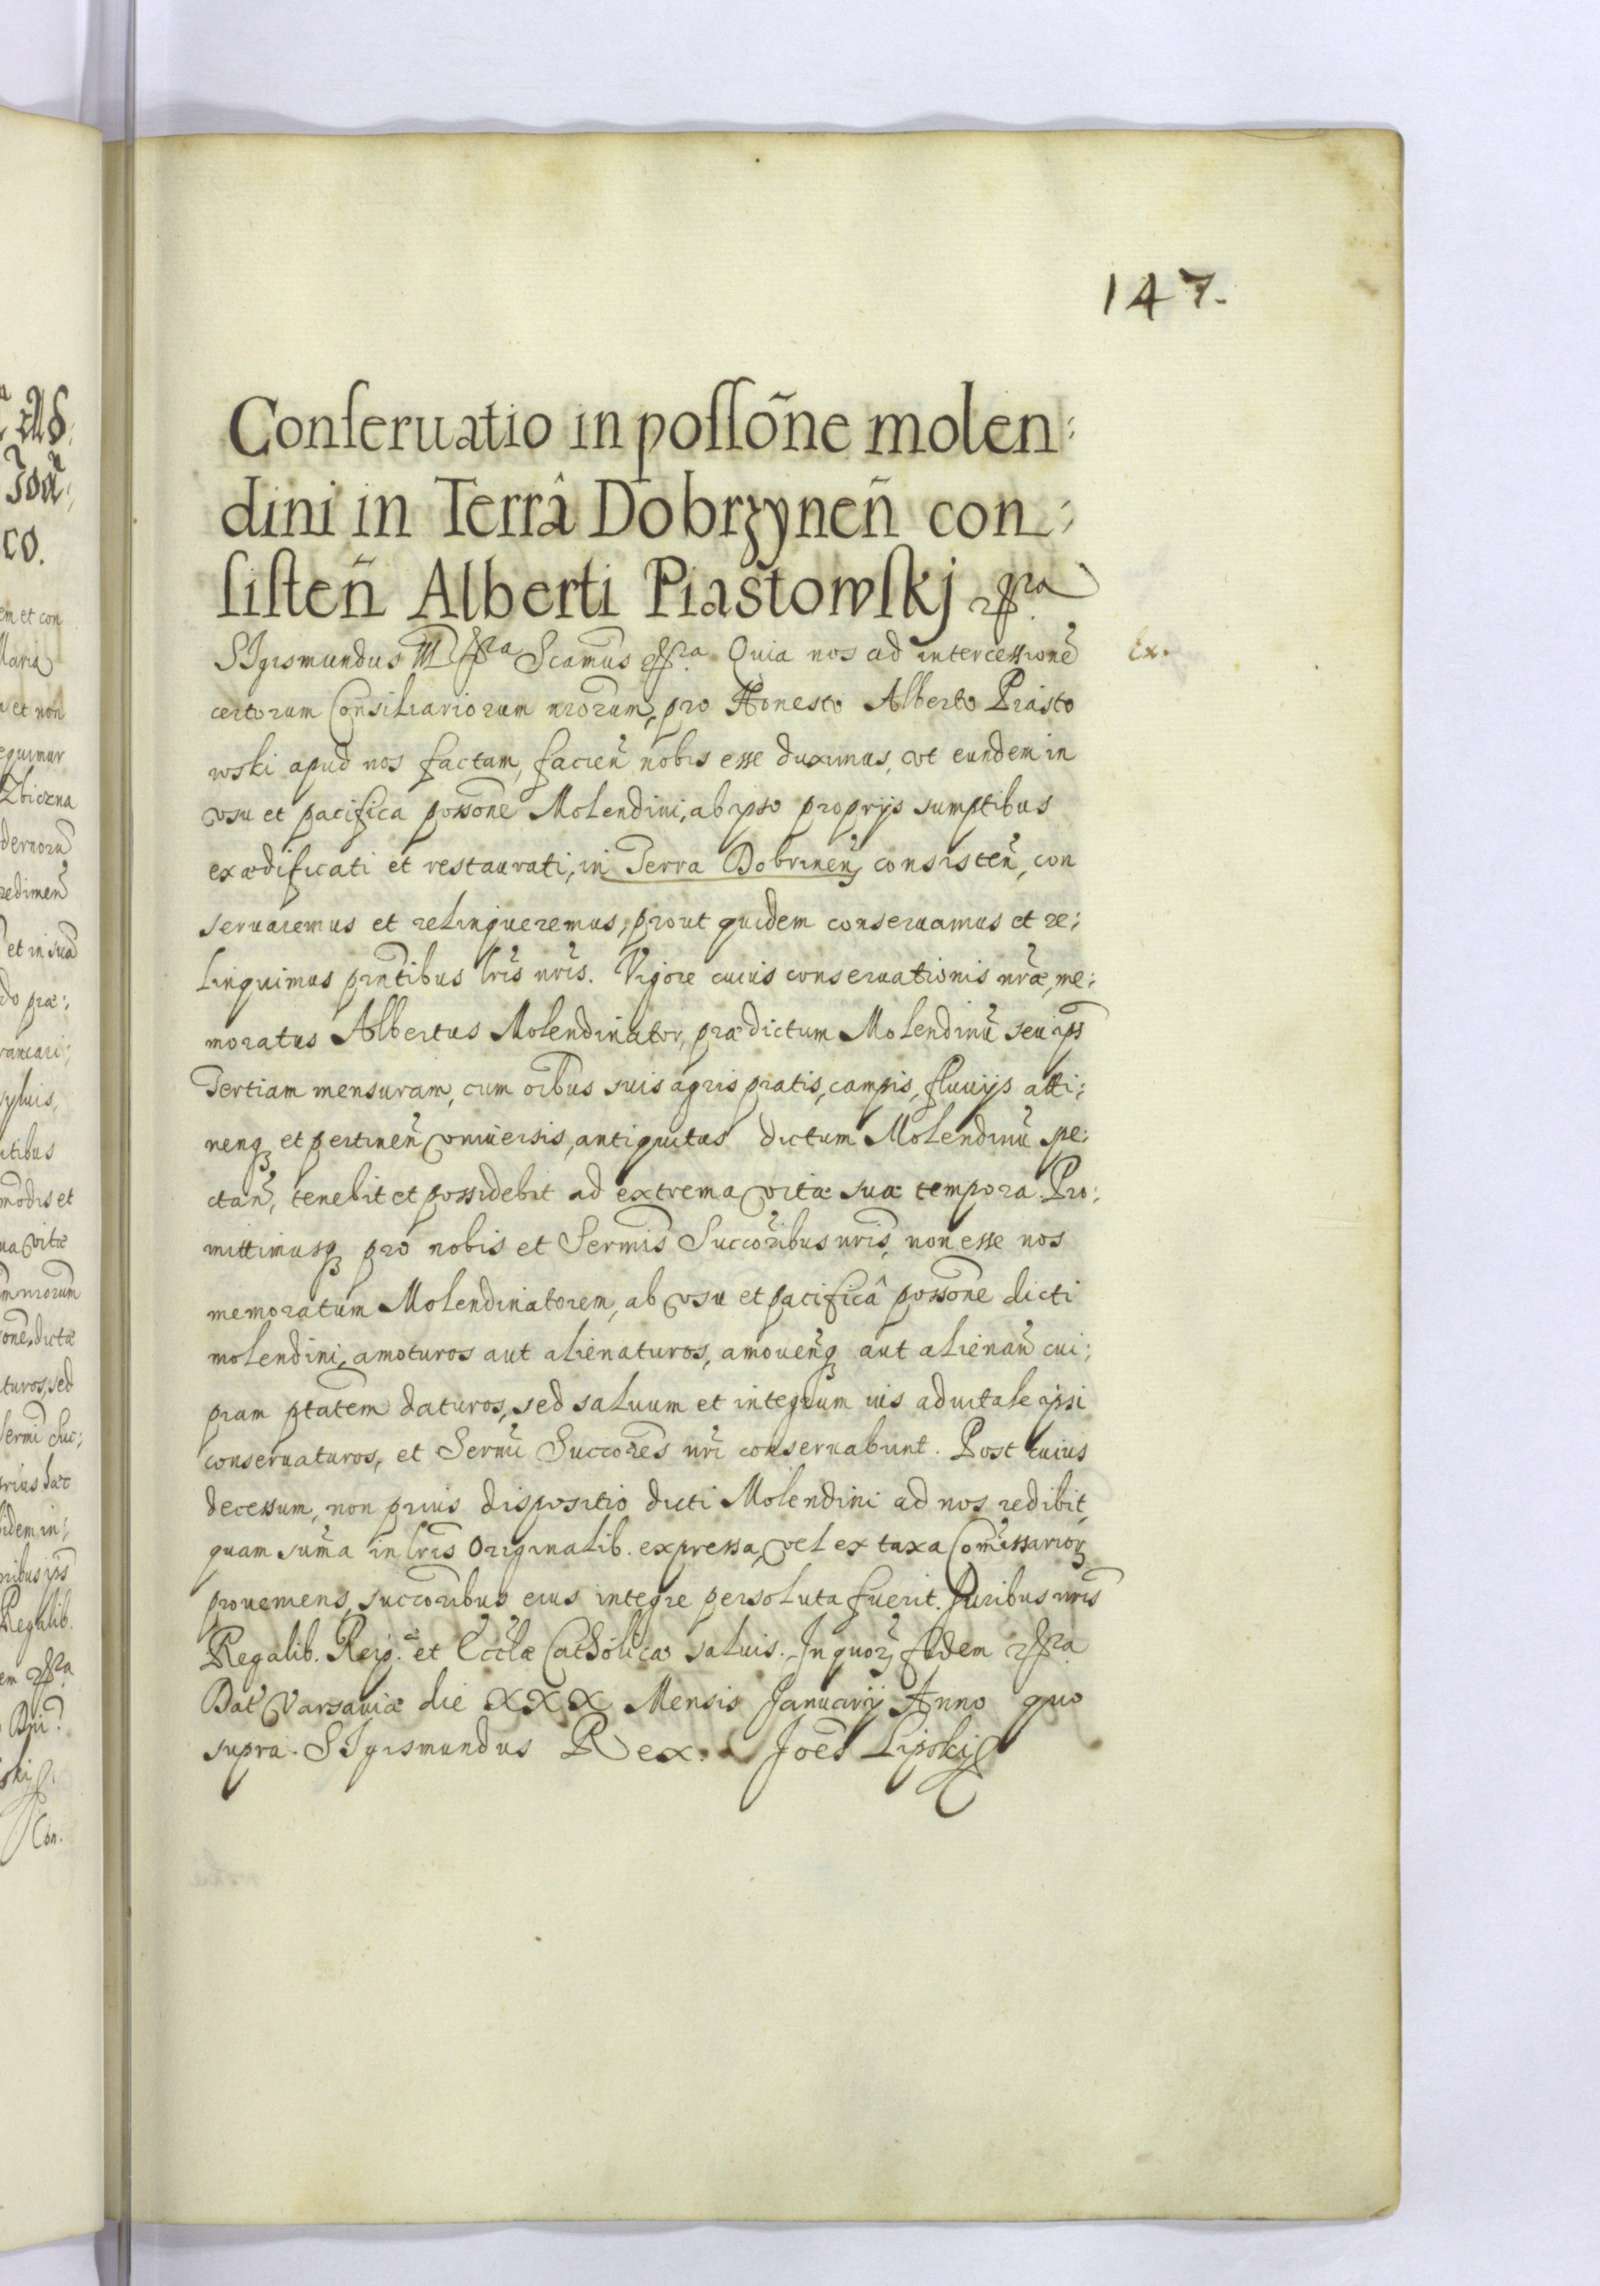 147.
Conseruatio in possõne molen:
dini in Terrâ Dobrzyneñ con:
sisteñ Alberti Piastowskj
SIgismundus III Scamus Quia nos ad intercessionẽ
Ex.
certorum Consiliariorum nrorum, pro Honesto Alberto Piasto
wski apud nos factam, facieñ nobis esse duximus, vt eundem in
vsu et pacifica possone Molendini, ab ipso proprijs sumptibus
exædificati et restaurati, in Terra Dobrineñ, consisteñ, con
seruaremus et relinqueremus, prout quidem conseruamus et re:
linquimus pntibus lris nris. Vigore cuius conseruationis nræ, me:
moratus Albertus Molendinator, prædictum Molendinũ seu ips
Tertiam mensuram, cum oibus suis agris pratis, campis, fluuijs atti:
nenq et pertineñ vniuersis, antiquitus dictum Molendinũ spe:
ctañ, tenebit et possidebit ad extrema vitæ suæ tempora. Pro:
mittimusq pro nobis et Sermis Succoribus nris, non esse nos
memoratum Molendinatorem, ab vsu et pacificâ possone dicti
molendini, amoturos aut alienaturos, amoueñq aut alienañ cui:
piam ptatem daturos, sed saluum et integrum ius aduitale ipsi
conseruaturos, et Sermi Succores nri conseruabunt. Post cuius
decessum, non prius dispositio dicti Molendini ad nos redibit,
quam sum̃a in lris Originalib. expressa, vel ex taxa Com̃issarior
proueniens, succoribus eius integre persoluta fuerit. Juribus nris
Regalib. Reip. et Ecclæ Catholicæ saluis. In quor fidem
Dat Varsauiæ die XXX Mensis Januarij Anno quo
supra. SIgismundus Rex. Joes Lipski